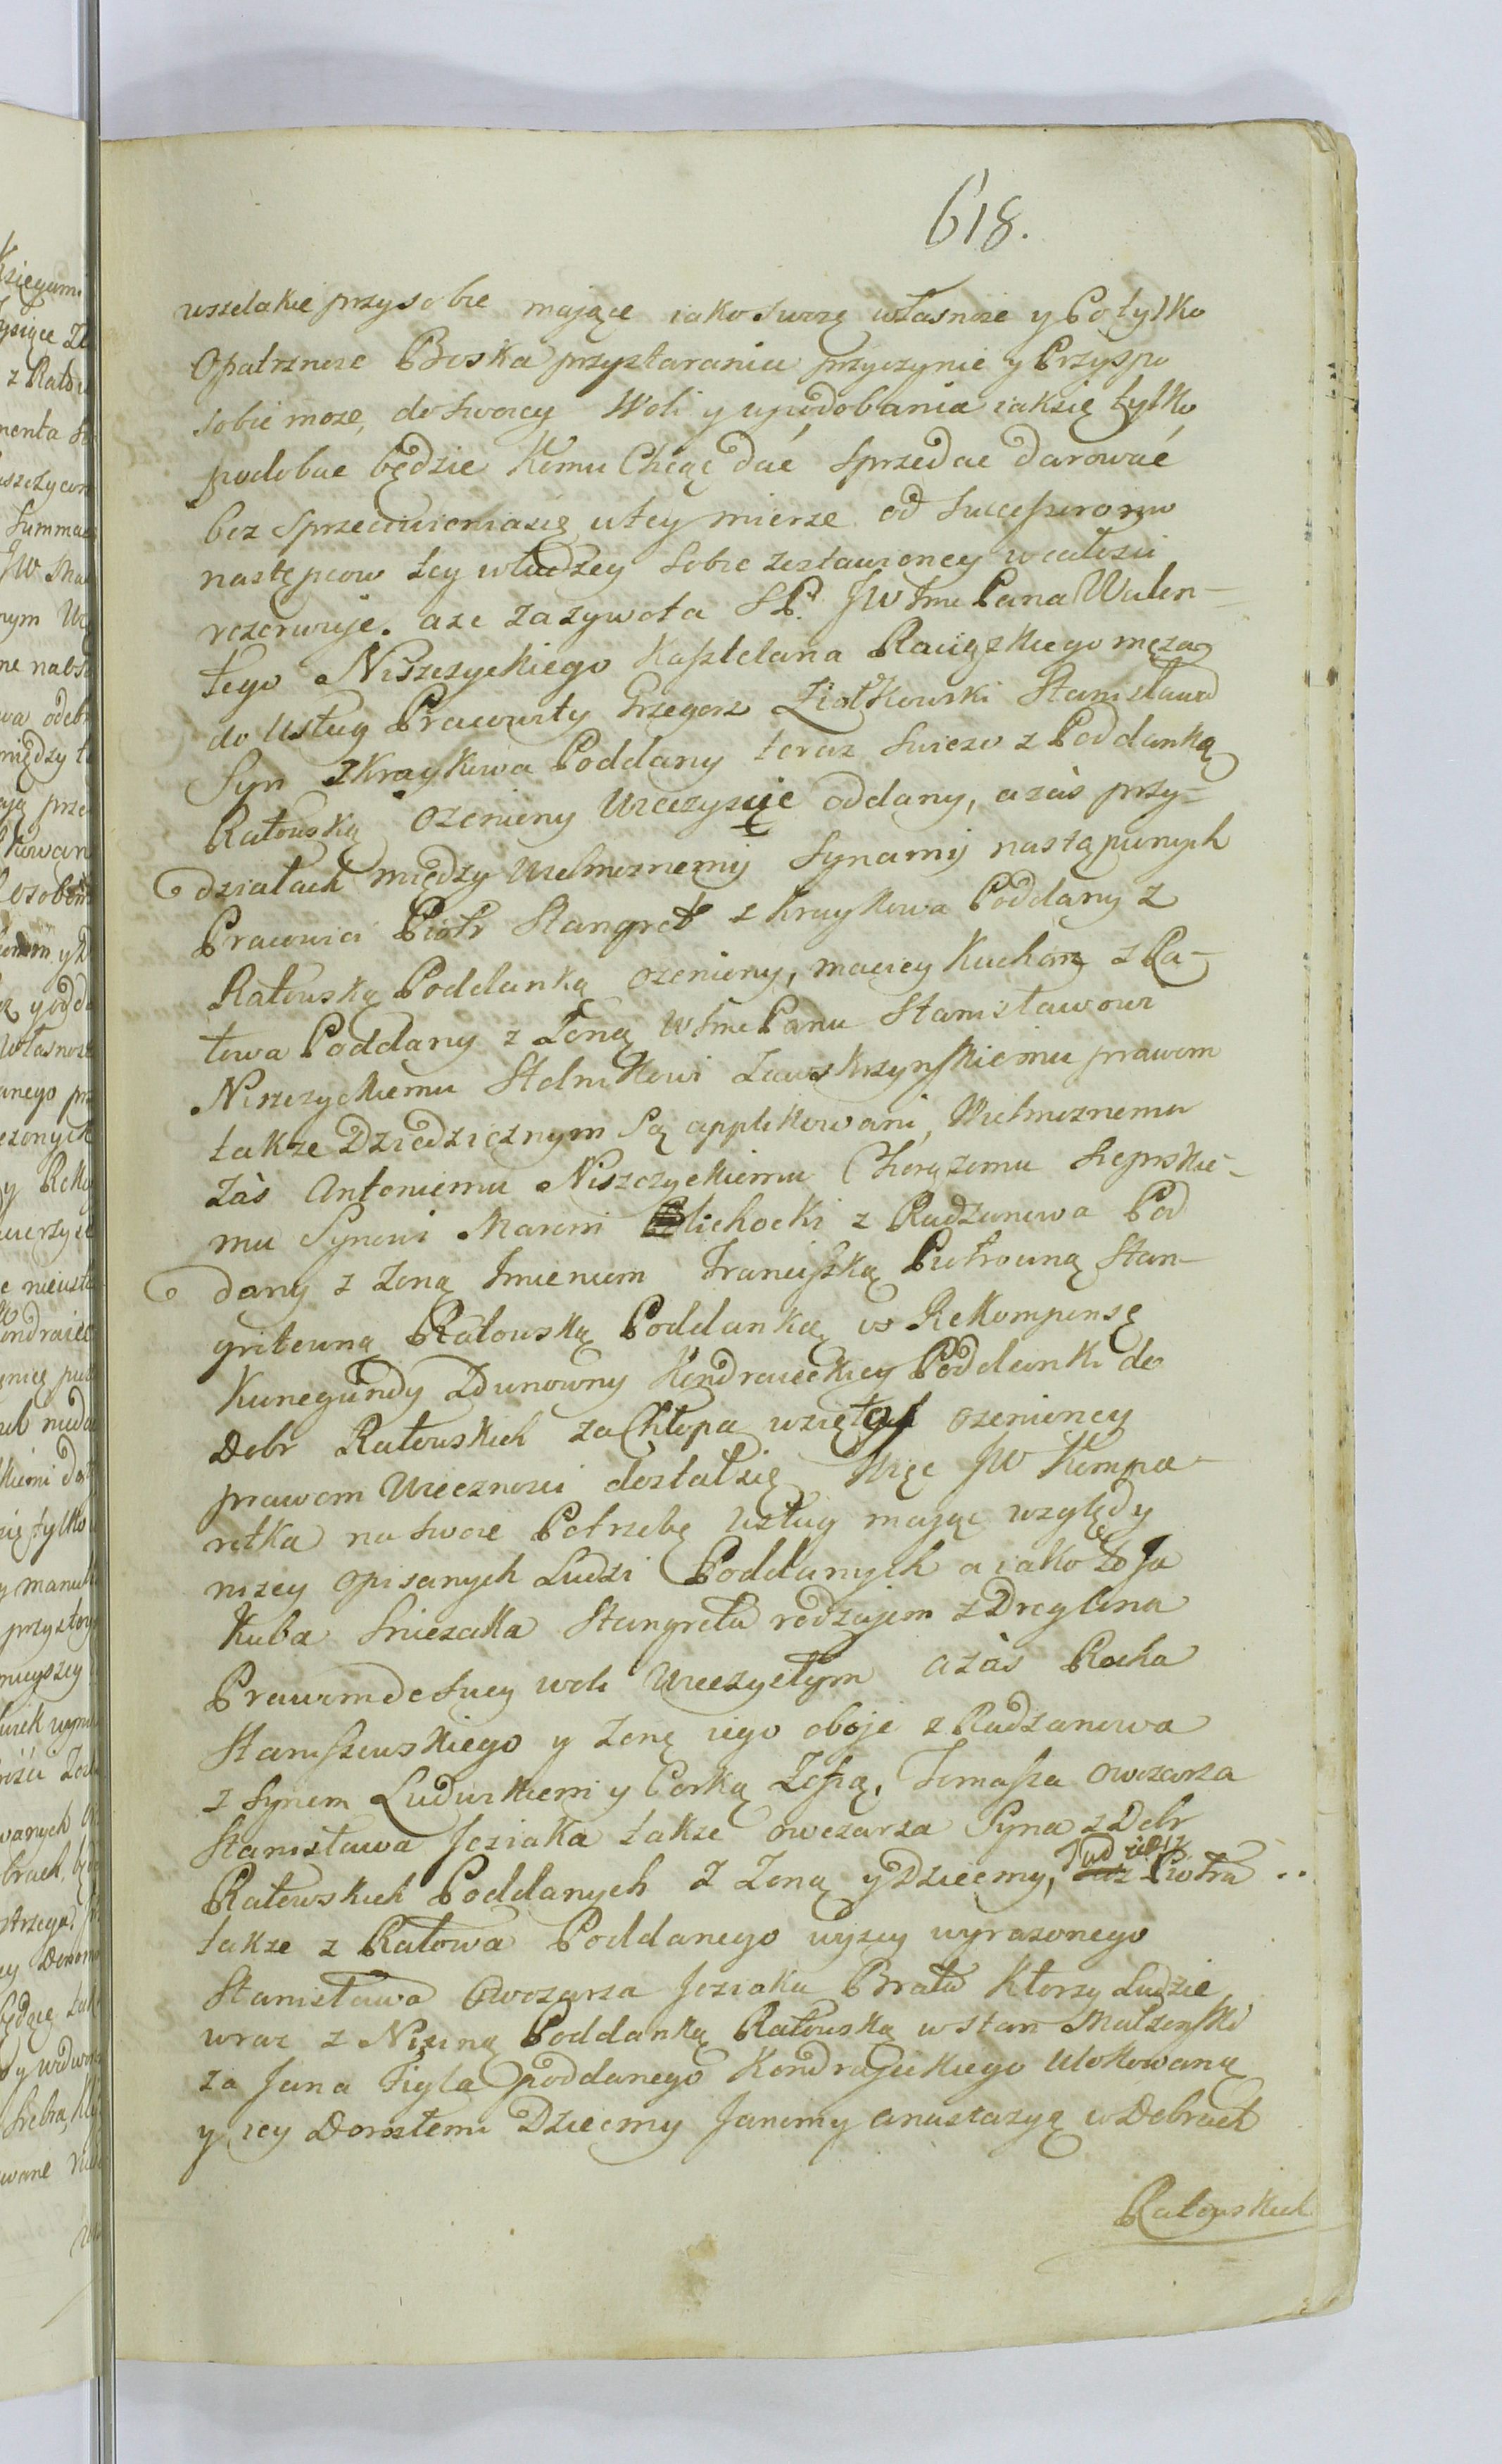 618.
wszelakie przysobie mające iako swoię własnosc y Co tylko
Opatrznosc Boska przystaraniu przyczynic y Przyspo
sobic moze, do swoiey Woli y upodobania iaksię tylko
podobac będzie Komu Chcąc dać Sprzedac darować
bez Sprzeciwieniasię wtey mierze od Successorow
następcow tey władzey Sobie zostawioney wcałosci
rezerwuje. aze zazywota SP. JW Jmc Pana Walen-
tego Niszczyckiego Kasztelana Raciązkiego męza
do Usług Pracowity Grzegorz Ziółkowski Stanisława
Syn zKraykowa Poddany teraz swiezo z Poddanką
Ratowską Ozeniony Wieczyscie oddany, azas przy-
działach między Wielmoznemi Synami nastąpionych
Pracowici Piotr Stangret z Kraykowa Poddany z
Ratowską Poddanką ozeniony, maciey Kucharz z Ra-
towa Poddany z Zoną WJmc Panu Stanisławowi
Niszczyckiemu Stolnikowi Zawskrzynskiemu prawem
takze Dziedzicznym Są applikowani, Wielmoznemu
Zàs Antoniemu Niszczyckiemu Chorązemu Sierpskie-
mu Synowi Marcin Cichocki z Radzanowa Pod
dany z Zoną Imieniem Franciszką Piotrowną Stan-
gretowną Ratowską Poddanką w Rekompensę
Kunegundy Zdunowny Kondraieckiey Poddanki do
Dobr Ratowskich za Chłopa wziętey ozenioney
prawem Wiecznosci dostałsię Więc JW Kompa-
retka na swoie Potrzebę Usług maiąc względy
nizey opisanych Ludzi Poddanych a iako to Ja
kuba Sniezaka Stangreta rodzajem z Dreglina
Prawem do swey woli Wieczystym azàs Rocha
Staniszewskiego y Zonę iego oboje z Radzanowa
z Synem Ludwikiem y Corką Zofią, Tomasza Owczarza
Stanisława Jeziaka takze owczarza Syna z Dobr
Ratowskich Poddanych z Zoną y Dziecmy, Tudziesz Piotra ..
takze z Ratowa Poddanego wyzey wyrazonego
Stanisława Owczarza Jeziaka Brata Ktorzy Ludzie
wraz z Niziną Poddanką Ratowską w stan Małzenski
za Jana Figla poddanego Kondrajeckiego Ulokowaną
y iey Dorosłemi Dziecmy Janemy Anastazyą w Dobrach
Ratowskich